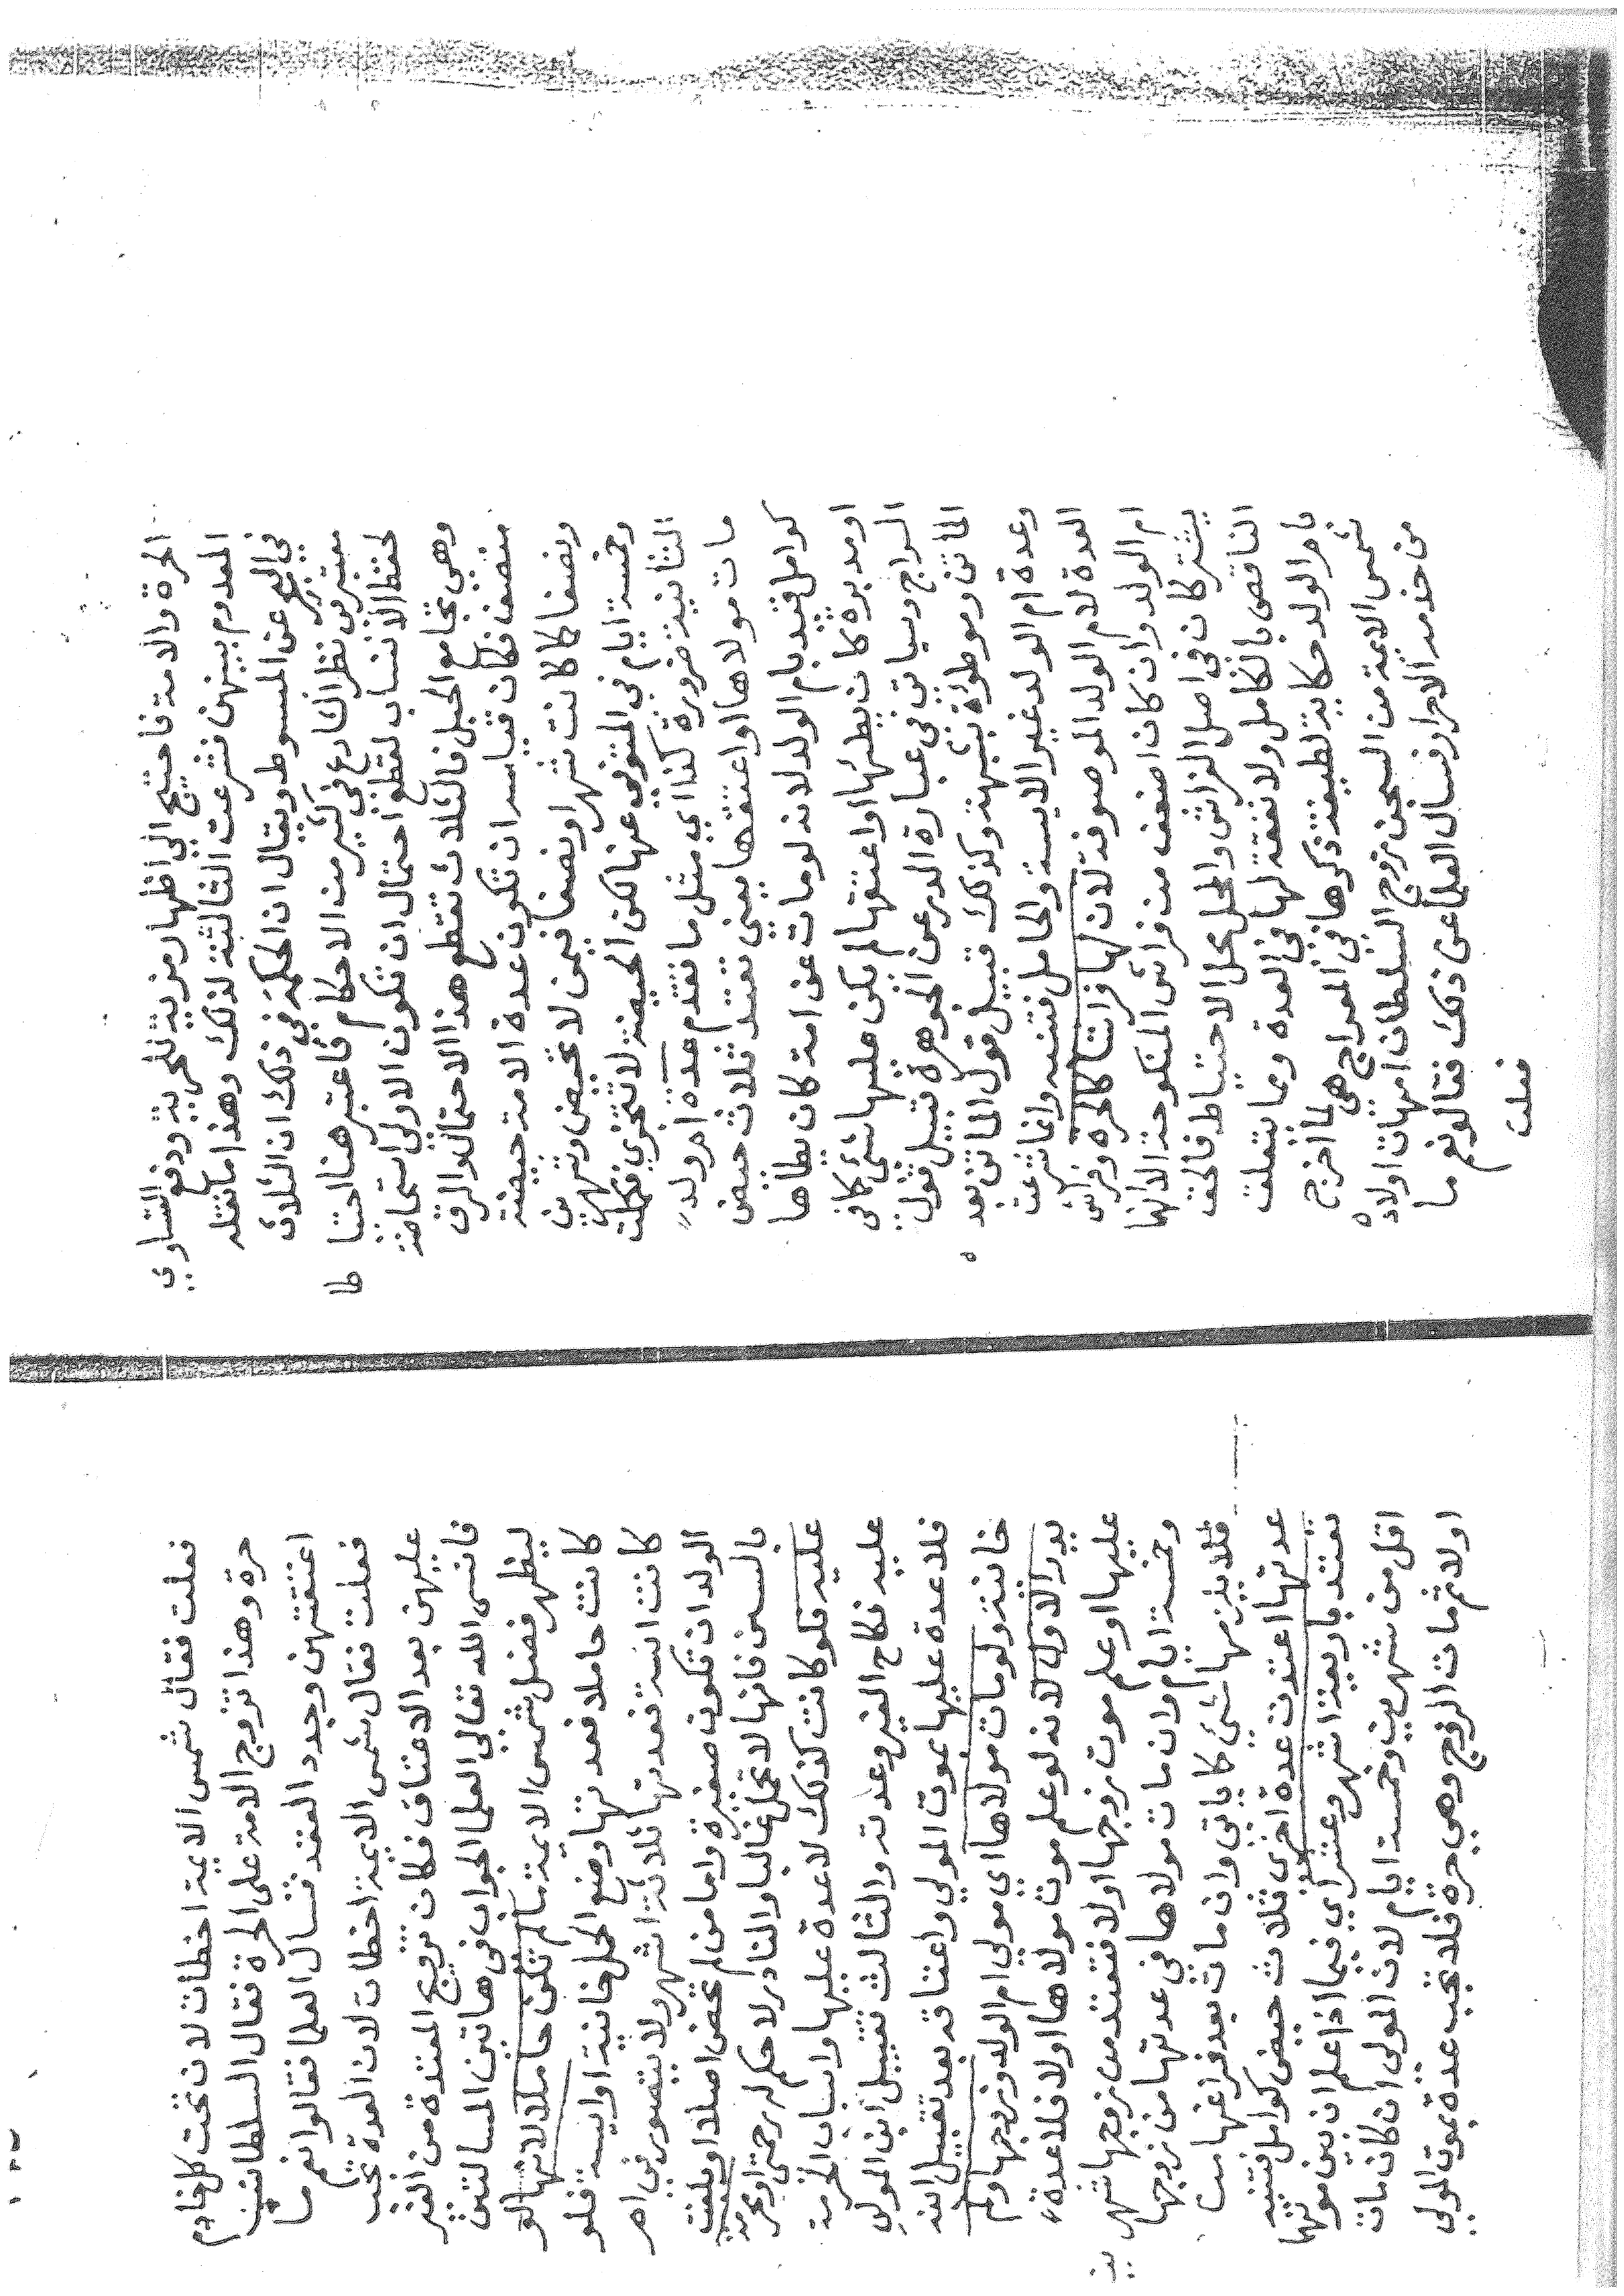 الحرة والامة فاحتيج الى اظهار مزية للحرية ودفع التساوي
المعدوم بينهن فشرعت الثالثة لذلك وهذا ما نقله
في البحر عن المبسوط ويقال ان الحكمة في ذلك ان الثلاث
معتبر في نظر الشارع في كثير من الاحكام فاعتبر هنا احتياطا
لحفظ الانساب لقطع احتمال ان تكون الاولى استحاضة
وهي تجامع الحبل فالثلاث تقطع هذا الاحتمال والرق
منصف فكان قياسه ان تكون عدة الامة حيضة
ونصفا كما كانت شهرا ونصفا فيمن لا تحيض وشهرين
وخمسة ايام في المتوفى عنها لكن الحيضة لا تتجزى فكملت
الثانية ضرورة كذا اي مثل ما تقدم عدة ام ولد
مات مولاها او اعتقها يعني تعتد ثلاث حيض
كوامل قيد بام الولد لانه لو مات عن امة كان يطاها
او مدبرة كان يطئها او اعتقها لم يكن عليها شئ كما في
السراج وسياتي في عبارة الدر عن الجوهرة قبيل قول
الماتن وموطوئة بشبهة وكذلك قبيل قول الماتن بعد
وعدة ام الولد غير الايسة والحامل فتنبه وانما شرعت
العدة لام الولد الموصوفة لان لها فراشا كالحرة وفراش
ام الولد وان كان اضعف من فراش المنكوحة الا انهما
يشتركان في اصل الفراش والمحل محل الاحتياط فالحق
الناقص بالكامل ولا نفقة لها في العدة ومما يتعلق
بام الولد حكاية لطيفة ذكرها في المعراج هي لما اخرج
شمس الايمة من السجن زوج السلطان امهات اولاده
من خدمه الاحرار فسال العلما عن ذلك فقالو نعم ما
فعلت
فعلت فقال شمس الايمة اخطات لان تحت كل خادم
حرة وهذا تزوج الامة على الحرة فقال السلطان
اعتقتهن وجدد العقد فسال العلما فقالوا نعم ما
فعلت فقال شمس الايمة اخطات لان العدة تجب
عليهن بعد الاعتاق فكان تزويج المعتدة من الغير
فانسى الله تعالى العلما الجواب في هاتين المسالتين
ليظهر فضل شمس الايمة ما لم تكن حاملا لانها لو
كانت حاملا فعدتها وضع الحمل خانية او ايسة فلو
كانت ايسة فعدتها ثلاثة اشهر ولا يتصور في ام
الولد ان تكون صغيرة واما من لم تحض اصلا او بلغت
بالسن فانها لا تحمل غالبا والنادر لا حكم له رحمتي او محرمة
عليه فلو كانت كذلك لا عدة عليها واسباب الحرمة
عليه نكاح الغير وعدته والثالث تقبيل ابن المولى
فلا عدة عليها بموت المولى واعتاقه بعد تقبيل ابنه
خانية ولو مات مولاها اي مولى ام الولد وزوجها ولم
يدر الاول لانه لو علم موت مولاها اولا فلا عدة
عليها او علم موت زوجها اولا فتعتد من زوجها شهرين
وخمسة ايام وان مات مولاها في عدتها من زوجها
فلا يلزمها شئ كما ياتي وان مات بعد فراغها من
عدتها اعتدت عدة اخرى ثلاث حيض كوامل فتنبه
تعتد باربعة اشهر وعشر اي فيما اذا علم ان بين موتهما
اقل من شهرين وخمسة ايام لان المولى ان كان مات
اولا ثم مات الزوج وهي حرة فلا تجب عدة بموت المولى